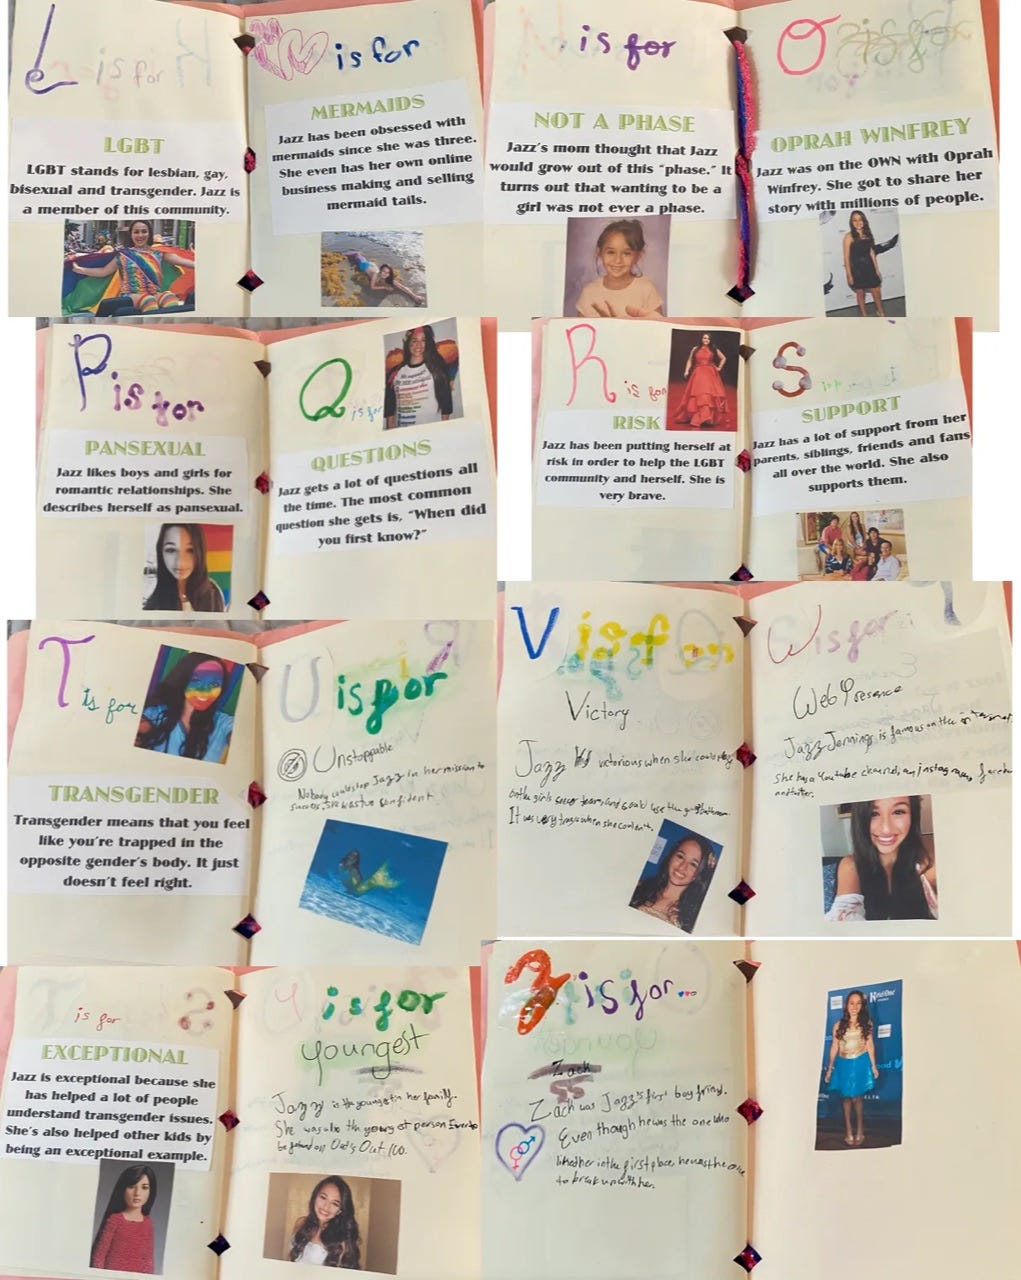 L is for
LGBT
LGBT stands for lesbian, gay,
bisexual and transgender. Jazz is
a member of this community.
M is for
MERMAIDS
Jazz has been obsessed with
mermaids since she was three.
She even has her own online
business making and selling
mermaid tails.
N is for
NOT A PHASE
Jazz's mom thought that Jazz
would grow out of this "phase." It
turns out that wanting to be a
girl was not ever a phase.
O is for
OPRAH WINFREY
Jazz was on the OWN with Oprah
Winfrey. She got to share her
story with millions of people.
P is for
PANSEXUAL
Jazz likes boys and girls for
romantic relationships. She
describes herself as pansexual.
Q is for
QUESTIONS
Jazz gets a lot of questions all
the time. The most common
question she gets is, "When did
you first know?"
R is for
RISK
Jazz has been putting herself at
risk in order to help the LGBT
community and herself. She is
very brave.
S is for
SUPPORT
Jazz has a lot of support from her
parents, siblings, friends and fans
all over the world. She also
supports them.
T is for
TRANSGENDER
Transgender means that you feel
like you're trapped in the
opposite gender's body. It just
doesn't feel right.
U is for
Unstoppable
Nobody could stop Jazz in her mission to
success. She was too confident.
V is for
Victory
Jazz victorious when she could play
on the girls soccer team and could use the girls bathroom.
It was very tragic when she couldn't.
W is for
Web Presence
Jazz Jennings is famous on the internet.
She has a Youtube channel, an instagram,
and twitter.
is for
EXCEPTIONAL
Jazz is exceptional because she
has helped a lot of people
understand transgender issues.
She's also helped other kids by
being an exceptional example.
Y is for
Youngest
Jazz is the youngest in her family.
She was also the youngest person ever to
be featured on Out's Out 100.
Z is for
Zach
Zach was Jazz's first boy friend.
Even though he was the one who
liked her in the first place, he was the one
to break up with her.